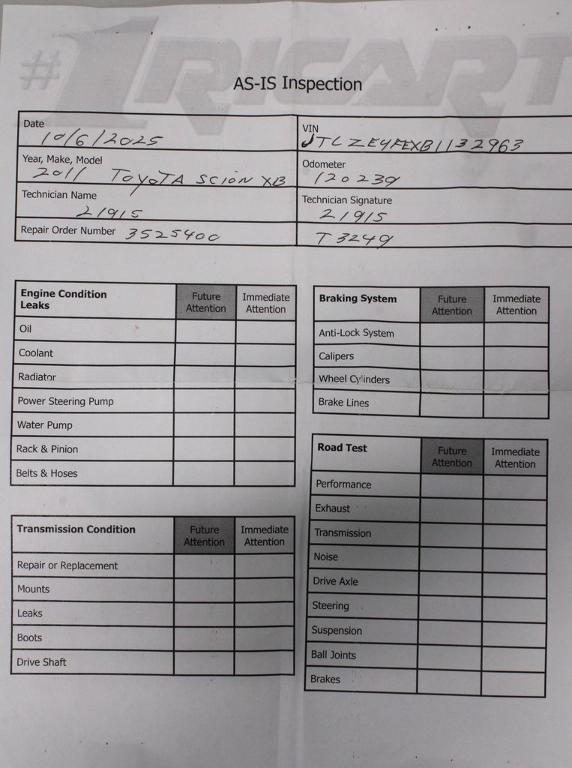 #1RICART
AS-IS Inspection
Date 10/6/2025
VIN JTLZE4FEXB1132963
Year, Make, Model 2011 TOYOTA SCION XB
Odometer 120239
Technician Name 21915
Technician Signature 21915
Repair Order Number 3525400
T3249
Engine Condition Leaks Future Attention Immediate Attention
Oil
Coolant
Radiator
Power Steering Pump
Water Pump
Rack & Pinion
Belts & Hoses
Braking System Future Attention Immediate Attention
Anti-Lock System
Calipers
Wheel Cylinders
Brake Lines
Transmission Condition Future Attention Immediate Attention
Repair or Replacement
Mounts
Leaks
Boots
Drive Shaft
Road Test Future Attention Immediate Attention
Performance
Exhaust
Transmission
Noise
Drive Axle
Steering
Suspension
Ball Joints
Brakes